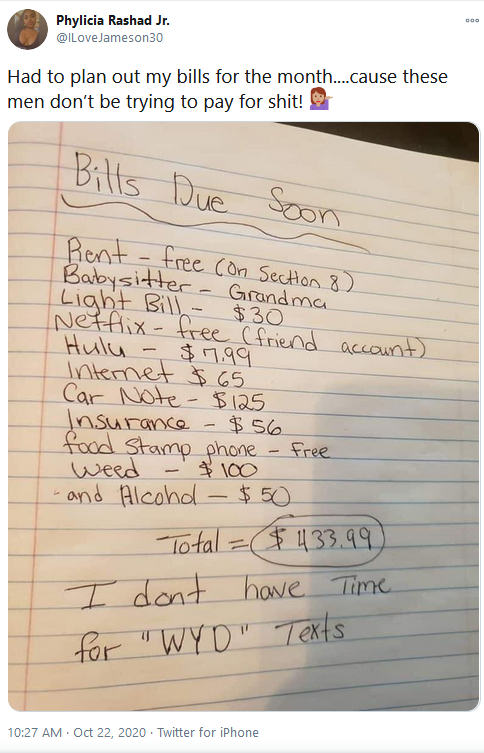 Phylicia Rashad Jr.
@ILoveJameson30
Had to plan out my bills for the month....cause these
men don't be trying to pay for shit! 💁🏽‍♀️
Bills Due Soon
Rent - free (on Section 8)
Babysitter - Grandma
Light Bill - $30
Netflix - free (friend account)
Hulu - $7.99
Internet $65
Car Note - $125
Insurance - $56
food Stamp phone - Free
Weed - $100
- and Alcohol - $50
Total = $433.99
I dont have Time
for "WYD" Texts
10:27 AM · Oct 22, 2020 · Twitter for iPhone